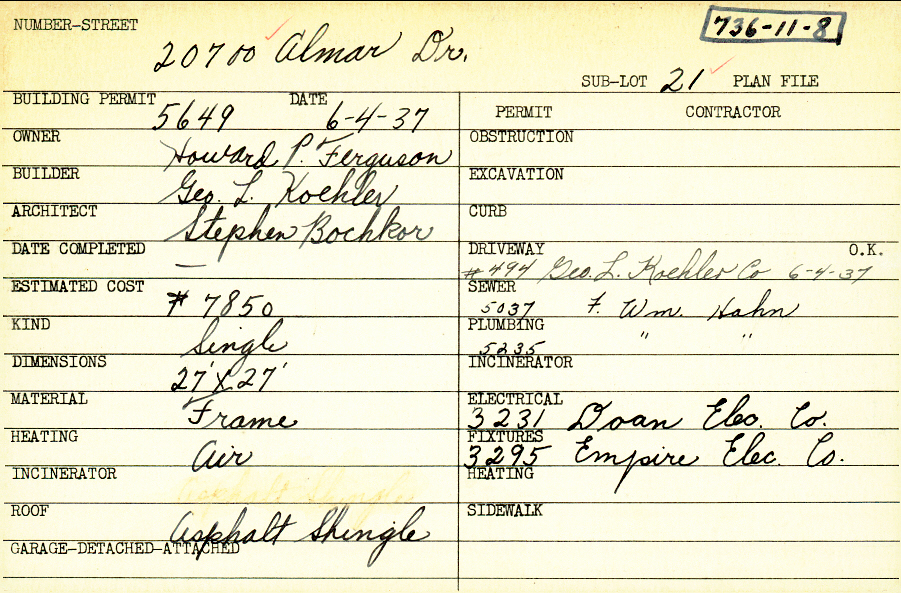 NUMBER-STREET
736-11-8
20700 Almar Dr.
SUB-LOT 21 PLAN FILE
BUILDING PERMIT 5649 DATE 6-4-37
OWNER Howard P. Ferguson
BUILDER Geo. L. Koehler
ARCHITECT Stephen Bochkor
DATE COMPLETED —
ESTIMATED COST # 7850
KIND Single
DIMENSIONS 27' X 27'
MATERIAL Frame
HEATING Air
INCINERATOR
ROOF Asphalt Shingle
GARAGE-DETACHED-ATTACHED
PERMIT CONTRACTOR
OBSTRUCTION
EXCAVATION
CURB
DRIVEWAY O.K.
# 494 Geo. L. Koehler Co 6-4-37
SEWER
5037 F. Wm. Hahn
PLUMBING
5235 " "
INCINERATOR
ELECTRICAL
3231 Doan Elec. Co.
FIXTURES
3295 Empire Elec. Co.
HEATING
SIDEWALK